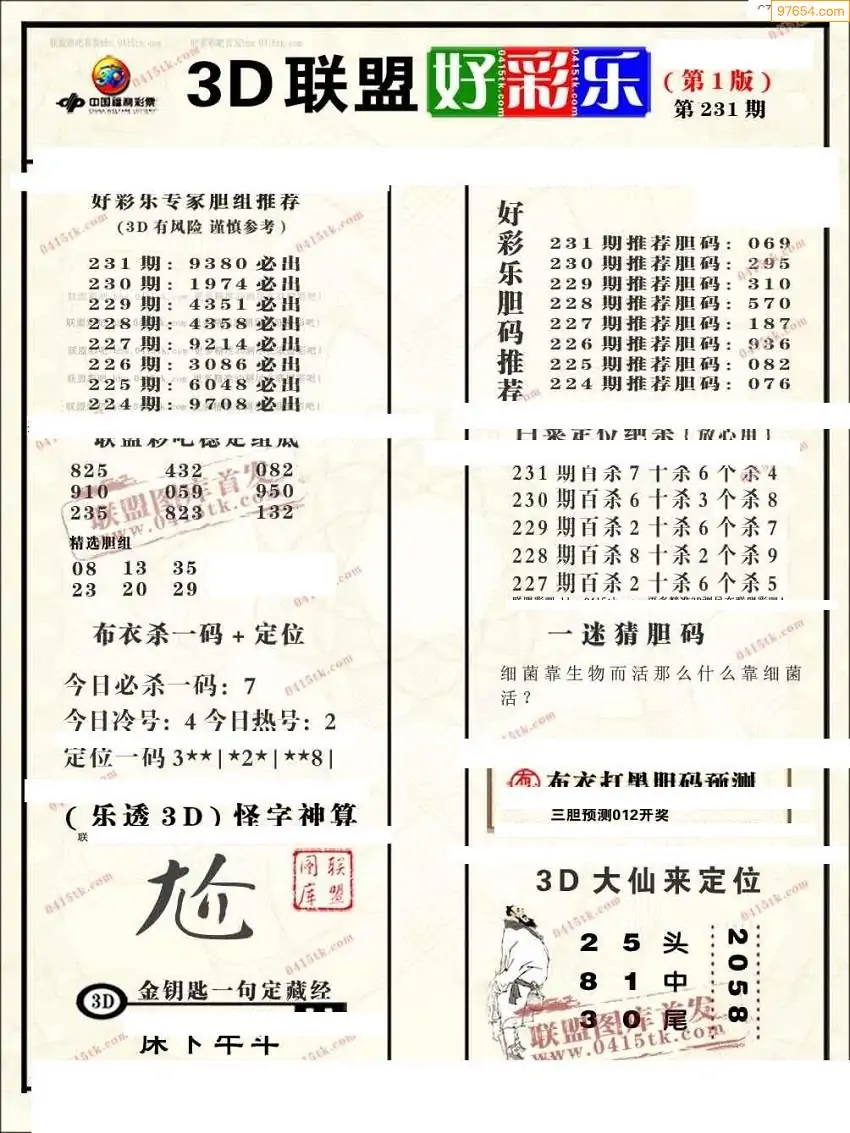 97654.com
3D联盟好彩乐
(第1版)
第231期
中国福利彩票
CHINA WELFARE LOTTERY
好彩乐专家胆组推荐
(3D有风险 谨慎参考)
231期:9380必出
230期:1974必出
229期:4351必出
228期:4358必出
227期:9214必出
226期:3086必出
225期:6048必出
224期:9708必出
联盟彩吧稳定组底
825 432 082
910 059 950
235 823 132
精选胆组
08 13 35
23 20 29
联盟图库首发
www.0415tk.com
布衣杀一码+定位
今日必杀一码:7
今日冷号:4 今日热号:2
定位一码3**|*2*|**8|
(乐透3D)怪字神算
联
尬
联盟图库
3D
金钥匙一句定藏经
床下牛斗
好彩乐胆码推荐
231期推荐胆码:069
230期推荐胆码:295
229期推荐胆码:310
228期推荐胆码:570
227期推荐胆码:187
226期推荐胆码:936
225期推荐胆码:082
224期推荐胆码:076
231期百杀7十杀6个杀4
230期百杀6十杀3个杀8
229期百杀2十杀6个杀7
228期百杀8十杀2个杀9
227期百杀2十杀6个杀5
一迷猜胆码
细菌靠生物而活那么什么靠细菌
活?
布衣打黑胆码预测
三胆预测012开奖
3D大仙来定位
2 5 头
8 1 中
3 0 尾
2058
联盟图库首发
www.0415tk.com